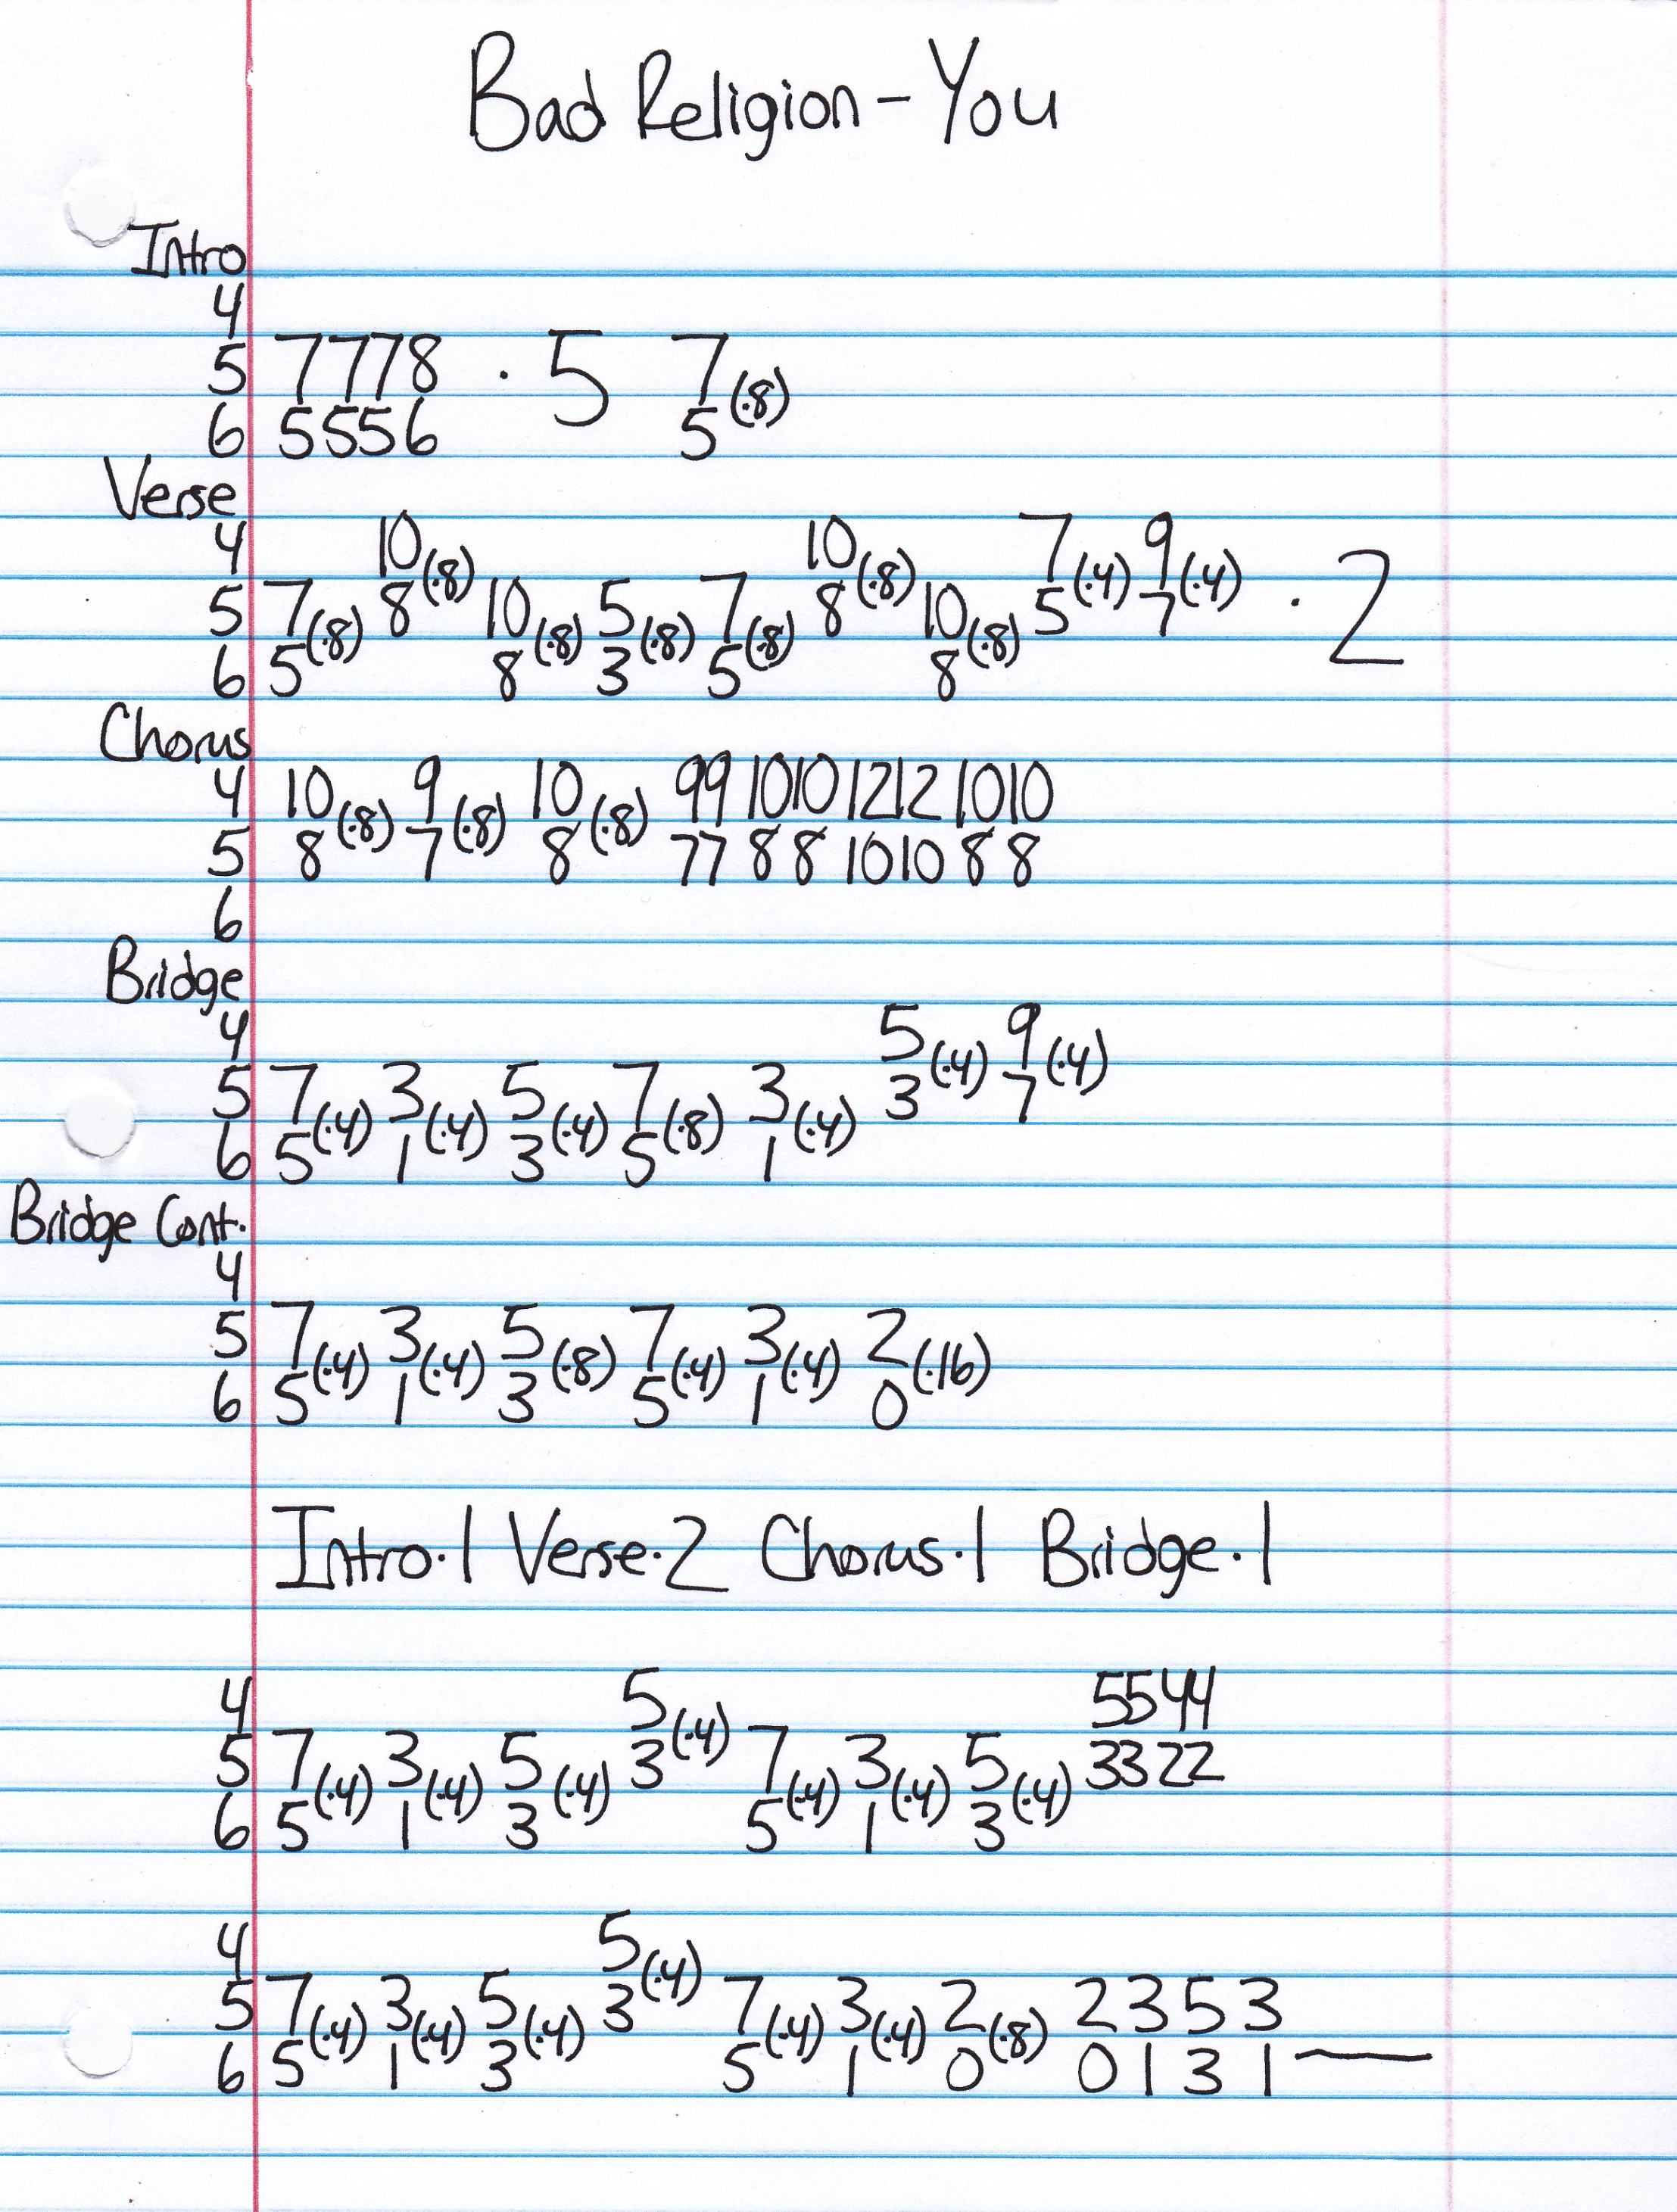 Bad Religion - You
Intro
4
5 7778 · 5 7(·8)
6 5556 5
Verse
4 10(·8) 10(·8) 7(·4) 9(·4)
5 7(·8) 8 10(·8) 5(·8) 7(·8) 8 10(·8) 5 7 · 2
6 5 8 3 5 8
Chorus
4 10(·8) 9(·8) 10(·8) 99 1010 1212 1010
5 8 7 8 77 88 1010 88
6
Bridge
4 5(·4) 9(·4)
5 7(·4) 3(·4) 5(·4) 7(·8) 3(·4) 3 7
6 5 1 3 5 1
Bridge Cont.
4
5 7(·4) 3(·4) 5(·8) 7(·4) 3(·4) 2(·16)
6 5 1 3 5 1 0
Intro·1 Verse·2 Chorus·1 Bridge·1
4 5(·4) 5544
5 7(·4) 3(·4) 5(·4) 3 7(·4) 3(·4) 5(·4) 3322
6 5 1 3 5 1 3
4 5(·4)
5 7(·4) 3(·4) 5(·4) 3 7(·4) 3(·4) 2(·8) 2 3 5 3
6 5 1 3 5 1 0 0 1 3 1